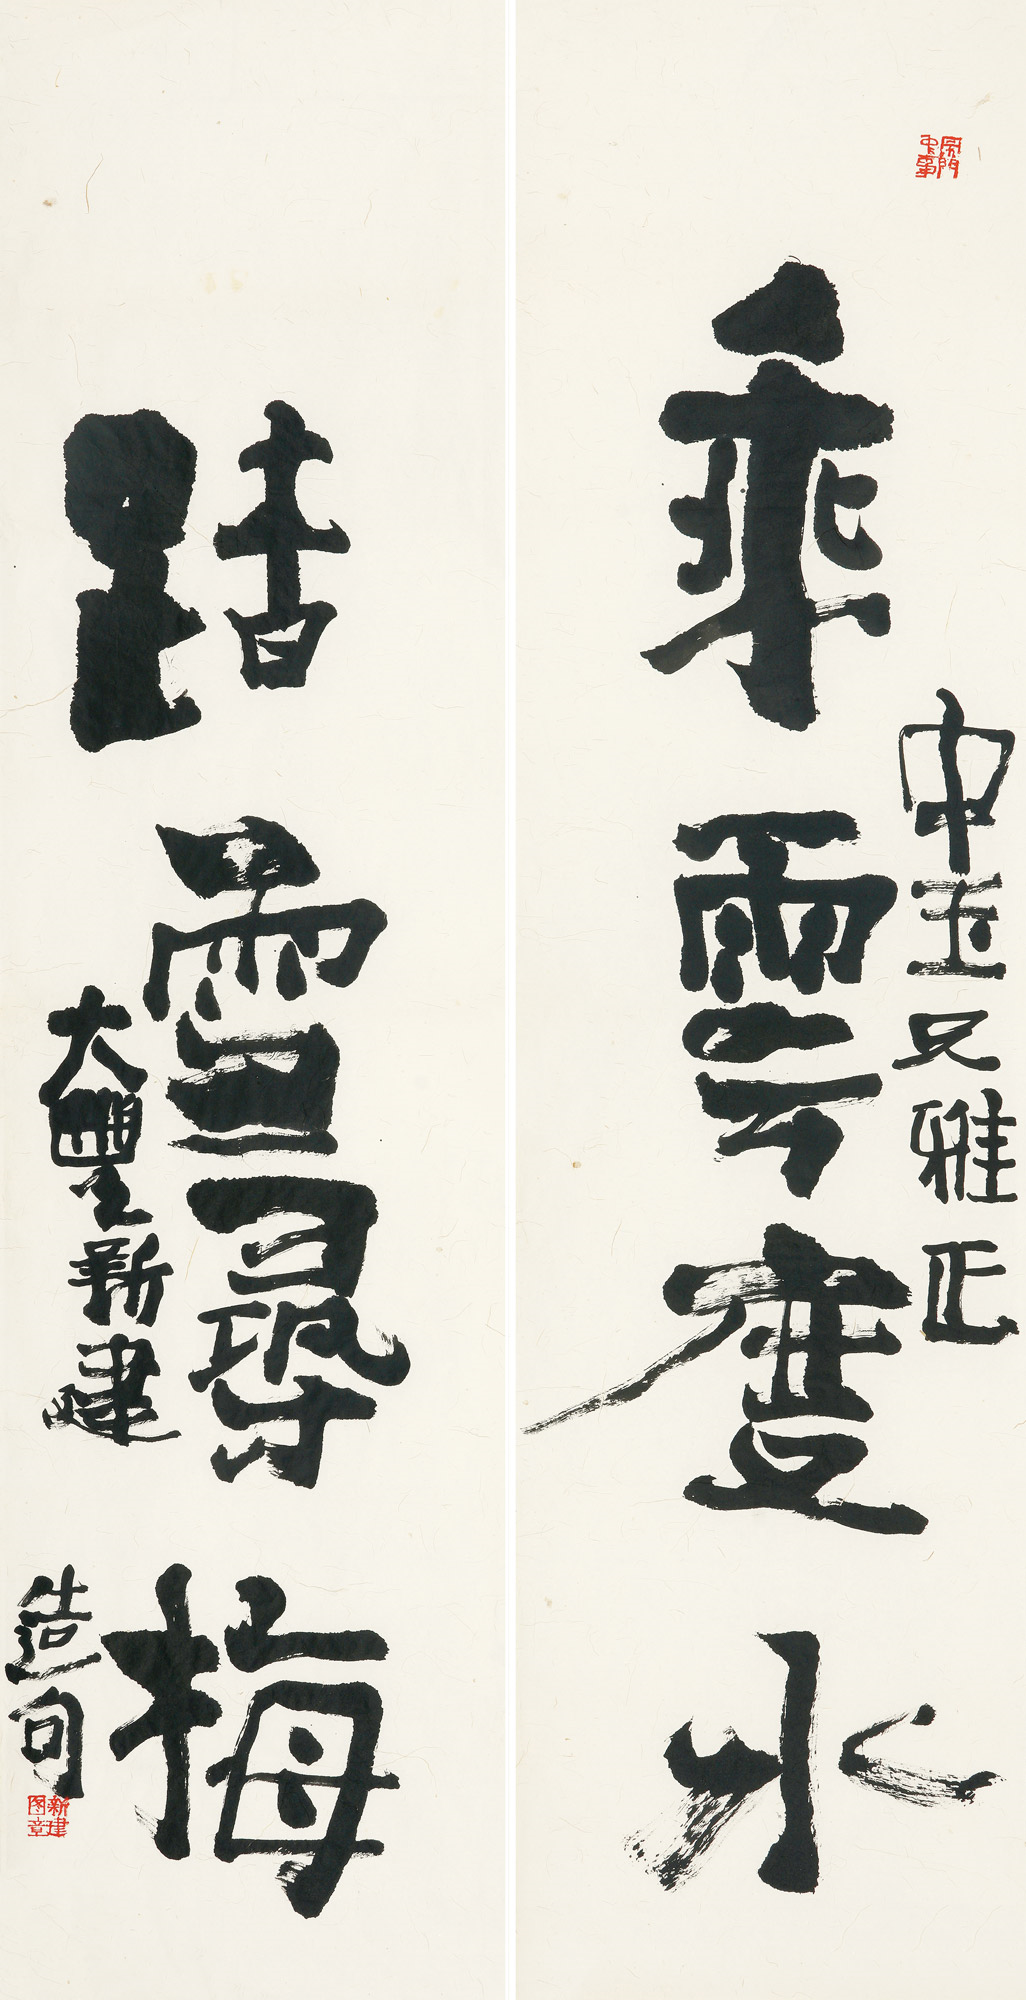 中玉兄雅正
乘雲度水
踏雪尋梅
大豐新建造句
新建图章